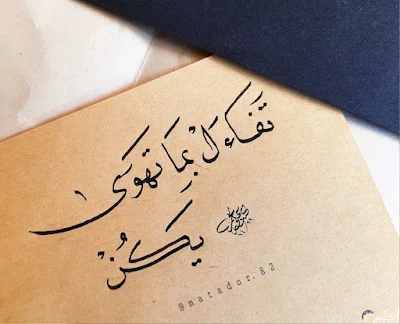 تَفَاءَلْ بِمَا تَهْوَى
يَكُنْ
@matador.82